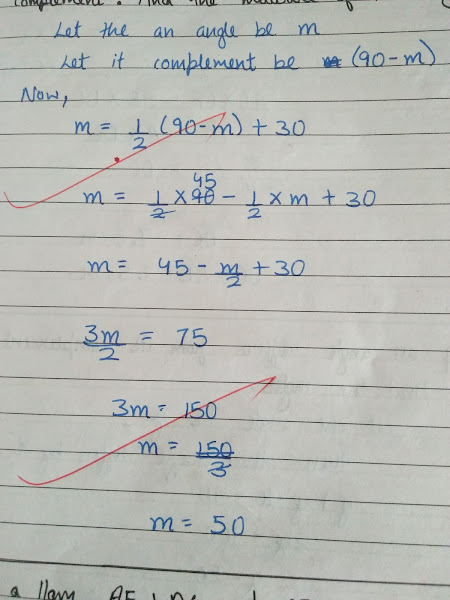 complement. And the measure of
Let the an angle be m
Let it complement be (90-m)
Now,
m = 1/2 (90-m) + 30
45
m = 1/2 × 90 - 1/2 × m + 30
m = 45 - m/2 + 30
3m/2 = 75
3m = 150
m = 150/3
m = 50
a llam